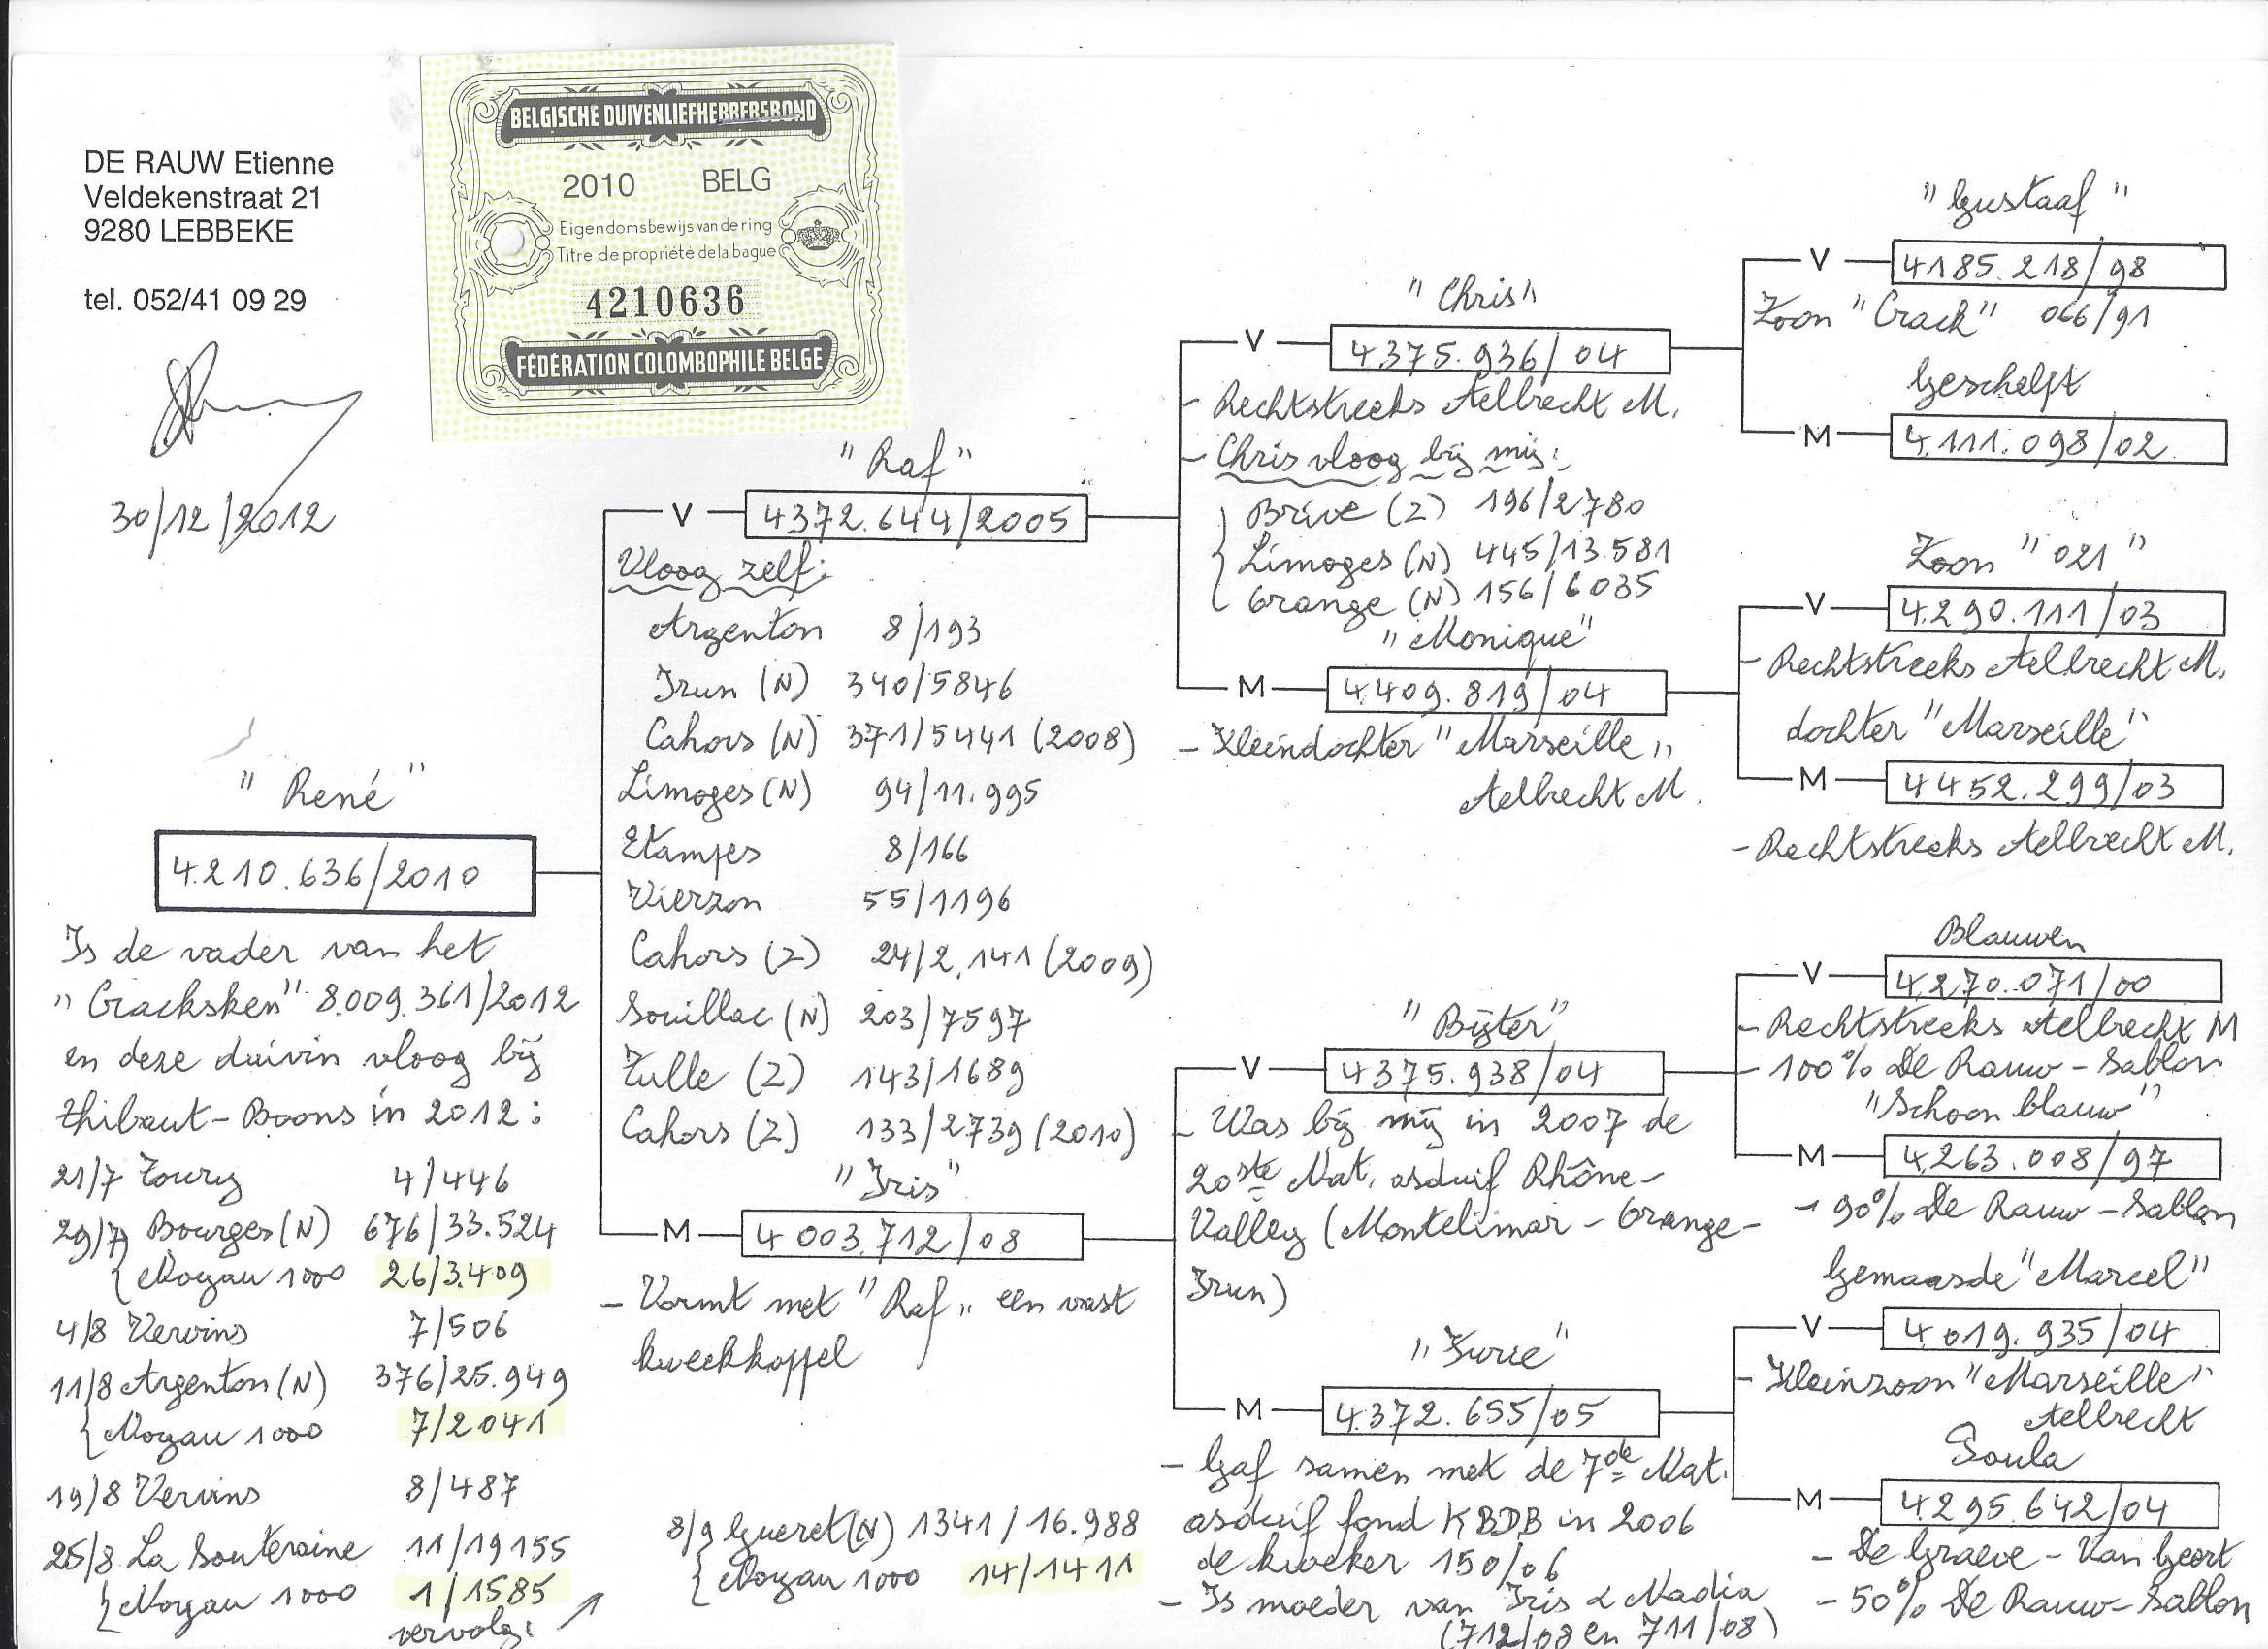 DE RAUW Etienne
Veldekenstraat 21
9280 LEBBEKE
tel. 052/41 09 29
30/12/2012
BELGISCHE DUIVENLIEFHEBBERSBOND
2010 BELG
Eigendomsbewijs van de ring
Titre de propriété de la bague
4210636
FÉDÉRATION COLOMBOPHILE BELGE
"René"
4.210.636/2010
Is de vader van het
"Cracksken" 8.009.361/2012
en deze duivin vloog bij
Thibaut-Boons in 2012:
21/7 Toury 4/446
29/7 Bourges (N) 676/33.524
{ Noyau 1000 26/3.409
4/8 Vervins 7/506
11/8 Argenton (N) 376/25.949
{ Noyau 1000 7/2041
19/8 Vervins 8/487
25/8 La Souteraine 11/19155
{ Noyau 1000 1/1585
vervolg:
8/9 Gueret (N) 1341/16.988
{ Noyau 1000 14/1411
"Raf"
V 4372.644/2005
Vloog zelf:
Argenton 8/193
Irun (N) 340/5846
Cahors (N) 371/5441 (2008)
Limoges (N) 94/11.995
Etampes 8/166
Vierzon 55/1196
Cahors (Z) 24/2.141 (2009)
Souillac (N) 203/7597
Tulle (Z) 143/1689
Cahors (Z) 133/2739 (2010)
"Iris"
M 4.003.712/08
- Vormt met "Raf" een vast
kweekkoppel
"Chris"
V 4.375.936/04
- Rechtstreeks Aelbrecht M.
- Chris vloog bij mij:
Brive (Z) 196/2780
Limoges (N) 445/13.581
Orange (N) 156/6035
"Monique"
M 4.409.819/04
- Kleindochter "Marseille"
Aelbrecht M.
"Bijter"
V 4.375.938/04
- Was bij mij in 2007 de
20ste Nat. asduif Rhône-
Valley (Montelimar - Orange-
Irun)
M 4.372.655/05
- Gaf samen met de 7de Nat.
asduif fond KBDB in 2006
de kweker 150/06
- Is moeder van Iris & Nadia
(712/08 en 711/08)
"Gustaaf"
V 4185.218/98
Zoon "Crack" 066/91
Geschelpt
M 4.111.098/02
Zoon "021"
V 4.290.111/03
- Rechtstreeks Aelbrecht M.
dochter "Marseille"
M 4452.299/03
- Rechtstreeks Aelbrecht M.
Blauwen
V 4.270.071/00
- Rechtstreeks Aelbrecht M
- 100% De Rauw-Sablon
"Schoon blauw"
M 4.263.008/97
- 90% De Rauw-Sablon
Gemaasde "Marcel"
V 4.019.935/04
- Kleinzoon "Marseille"
Aelbrecht
M 4.295.642/04
- De Graeve - Van Geert
- 50% De Rauw-Sablon